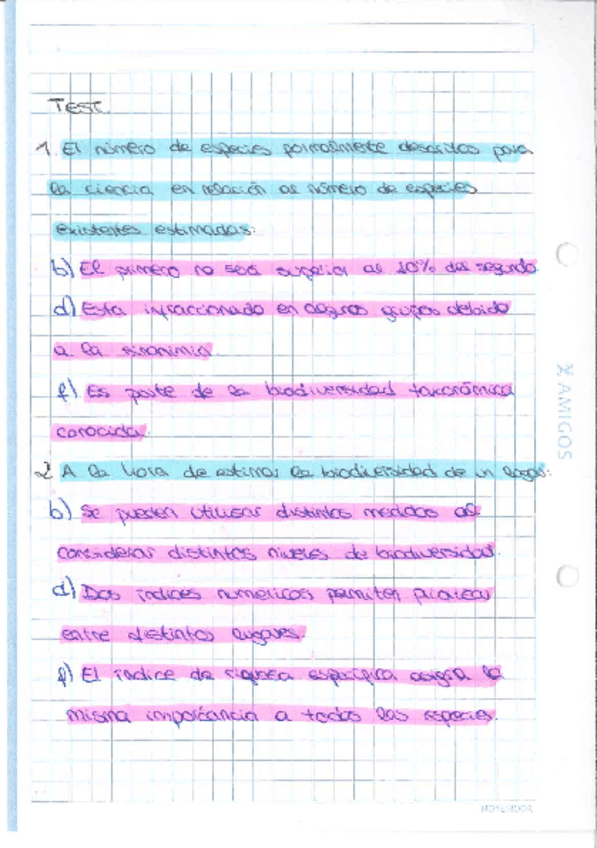 TEST
1. El número de especies formalmente descritas para
la ciencia en relación al número de especies
existentes estimadas:
b) El primero no será superior al 20% del segundo
d) Esta infraccionado en algunos grupos debido
a la sinonimia.
f) Es parte de la biodiversidad taxonómica
conocida.
2. A la hora de estimar la biodiversidad de un lugar:
b) Se pueden utilizar distintas medidas al
considerar distintos niveles de biodiversidad.
d) Dos índices numéricos permiten
entre distintos lugares.
f) El índice de riqueza específica asigna la
misma importancia a todas las especies.
AMIGOS
NOTEBOOK